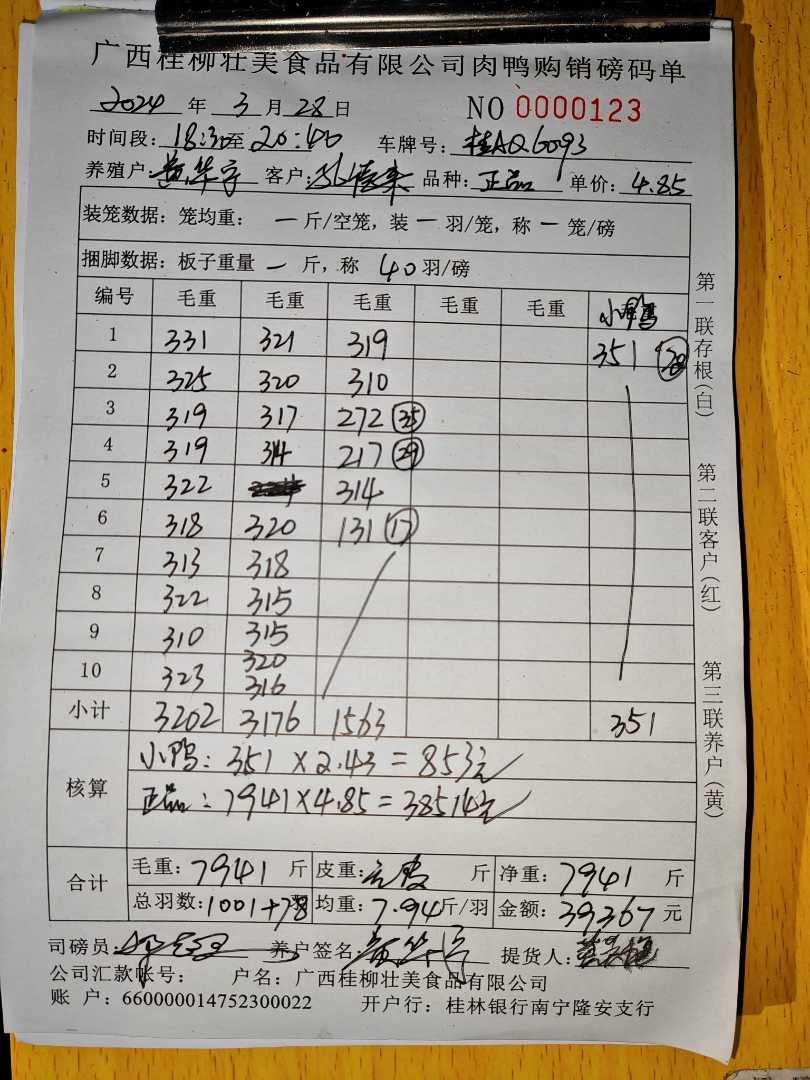 广西桂柳壮美食品有限公司肉鸭购销磅码单
2024 年 3 月 28 日 NO 0000123
时间段: 18:30至 20:40 车牌号: 桂AQ6093
养殖户: 黄华宇 客户: 品种: 正品 单价: 4.85
装笼数据: 笼均重: 一 斤/空笼, 装 一 羽/笼, 称 一 笼/磅
捆脚数据: 板子重量 一 斤, 称 40 羽/磅
编号 毛重 毛重 毛重 毛重 毛重 小鸭
1 331 321 319 351
2 325 320 310
3 319 317 272 35
4 319 314 217 29
5 322 314
6 318 320 131 17
7 313 318
8 322 315
9 310 315
320
10 323 316
小计 3202 3176 1563 351
核算
小鸭: 351×2.43=853元
正品: 7941×4.85=38514元
合计
毛重: 7941 斤 皮重: 斤 净重: 7941 斤
总羽数: 1001+78 均重: 7.94 斤/羽 金额: 39367 元
司磅员: 养户签名: 黄华宇 提货人:
公司汇款帐号: 户名: 广西桂柳壮美食品有限公司
账 户: 660000014752300022 开户行: 桂林银行南宁隆安支行
第一联存根(白)
第二联客户(红)
第三联养户(黄)